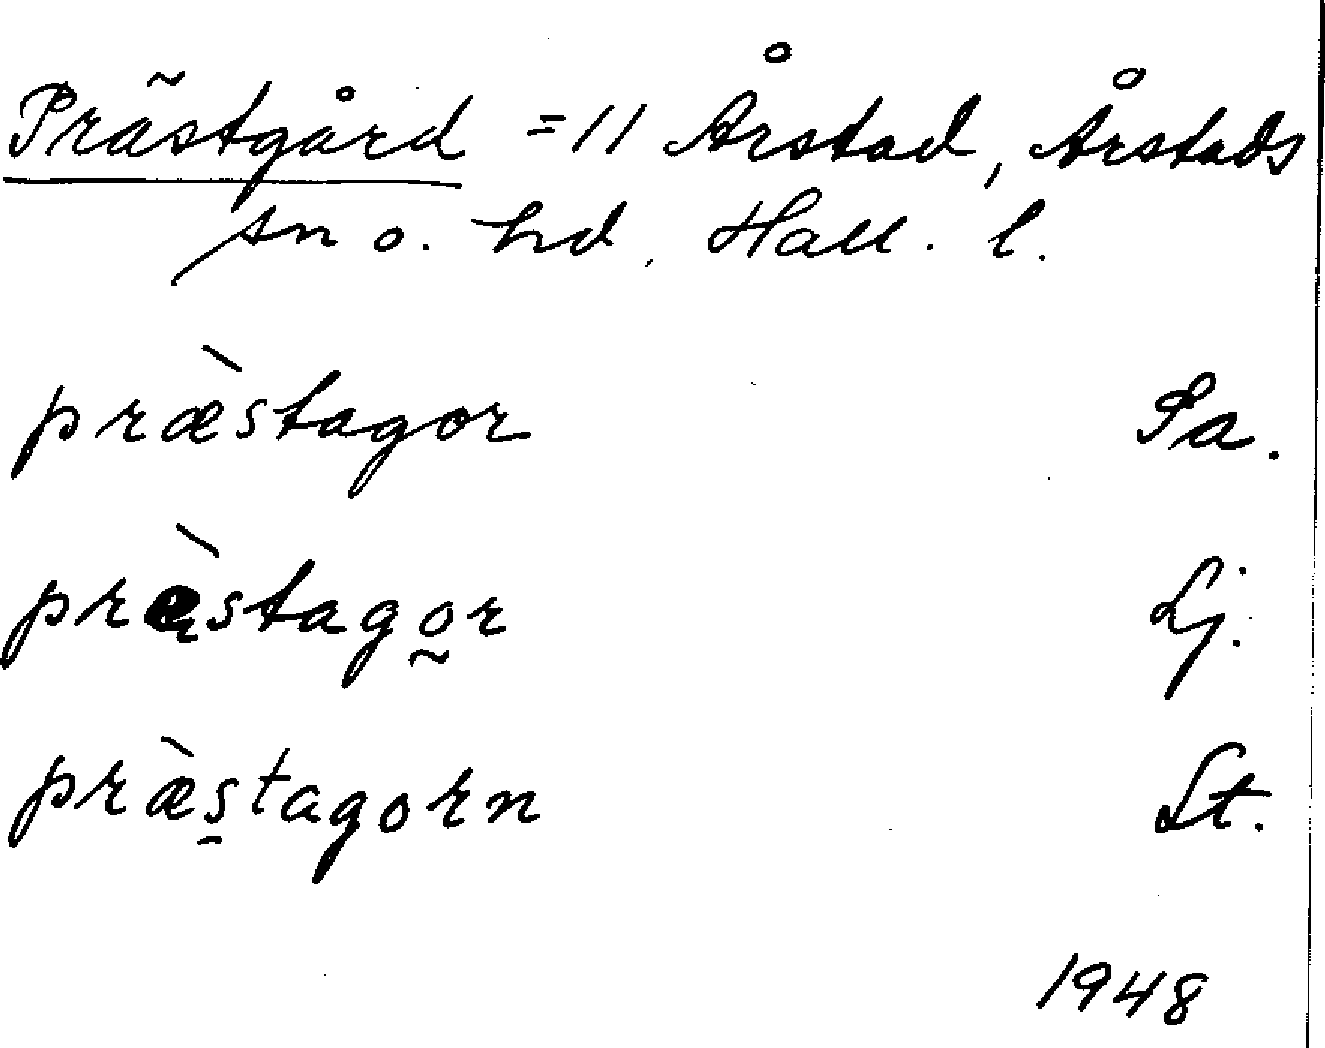 Prästgård = 11 Årstad, Årstads
sn o. hd, Hall. l.
præ̀stagor Sa.
præ̀stago̰r Lj.
præ̀s̱tagorn St.
1948